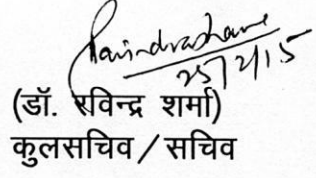 Ravindra Sharma
25/2/15
(डॉ. रविन्द्र शर्मा)
कुलसचिव / सचिव